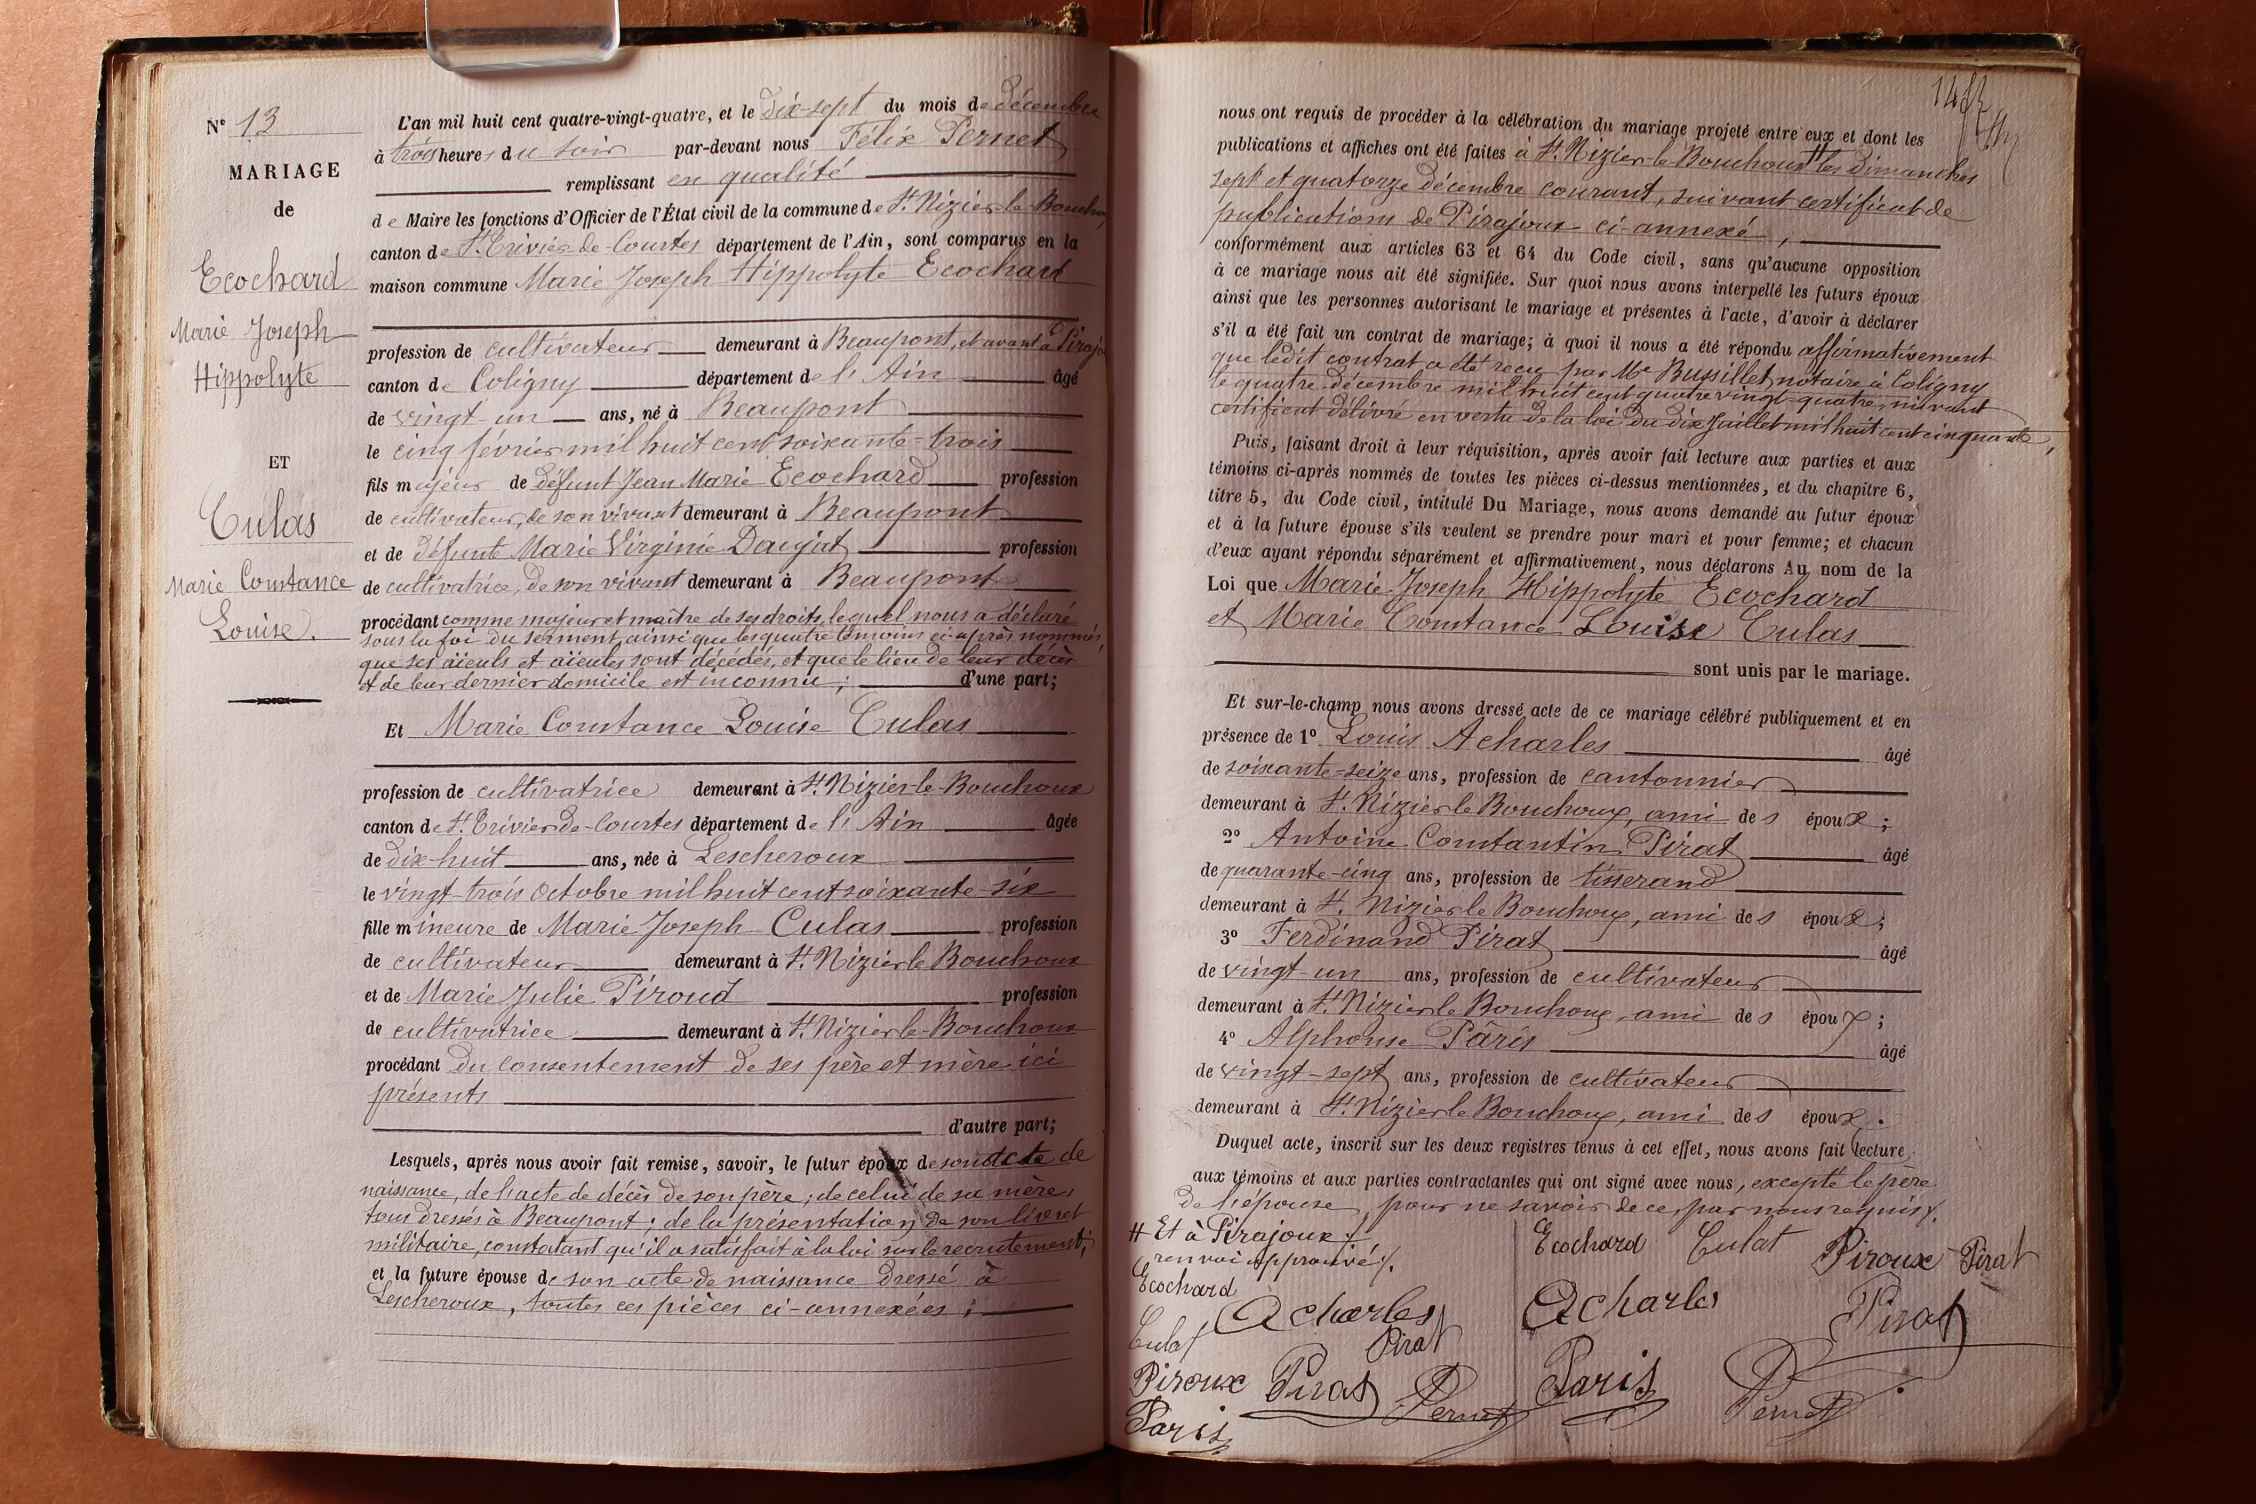 N° 13
MARIAGE
de
Ecochard
Marie Joseph
Hippolyte
ET
Culas
Marie Constance
Louise.
L'an mil huit cent quatre-vingt-quatre, et le dix-sept du mois de décembre
à trois heures du soir par-devant nous Félix Pernet
remplissant en qualité
de Maire les fonctions d'Officier de l'État civil de la commune de St. Nizier-le-Bouchoux,
canton de St. Trivier-de-Courtes département de l'Ain, sont comparus en la
maison commune Marie Joseph Hippolyte Ecochard
profession de cultivateur demeurant à Beaupont, et avant à Pirajoux
canton de Coligny département de l'Ain âgé
de vingt un ans, né à Beaupont
le cinq février mil huit cent soixante-trois
fils majeur de défunt Jean Marie Ecochard profession
de cultivateur, de son vivant demeurant à Beaupont
et de défunte Marie Virginie Daujat profession
de cultivatrice, de son vivant demeurant à Beaupont
procédant comme majeur et maître de ses droits, lequel nous a déclaré
sous la foi du serment, ainsi que les quatre témoins ci-après nommés,
que ses aïeuls et aïeules sont décédés, et que le lieu de leur décès
et de leur dernier domicile est inconnu ; d'une part;
Et Marie Constance Louise Culas
profession de cultivatrice demeurant à St. Nizier-le-Bouchoux
canton de St. Trivier-de-Courtes département de l'Ain âgée
de dix-huit ans, née à Lescheroux
le vingt-trois octobre mil huit cent soixante-six
fille mineure de Marie Joseph Culas profession
de cultivateur demeurant à St. Nizier le Bouchoux
et de Marie Julie Piroud profession
de cultivatrice demeurant à St. Nizier-le-Bouchoux
procédant du consentement de ses père et mère ici
présents
d'autre part;
Lesquels, après nous avoir fait remise, savoir, le futur époux de son acte de
naissance, de l'acte de décès de son père ; de celui de sa mère,
tous dressés à Beaupont ; de la présentation de son livret
militaire, constatant qu'il a satisfait à la loi sur le recrutement ;
et la future épouse de son acte de naissance dressé à
Lescheroux, toutes ces pièces ci-annexées ;
nous ont requis de procéder à la célébration du mariage projeté entre eux et dont les
publications et affiches ont été faites à St. Nizier-le-Bouchoux # les Dimanches
sept et quatorze décembre courant, suivant certificat de
publications de Pirajoux ci-annexé ;
conformément aux articles 63 et 64 du Code civil, sans qu'aucune opposition
à ce mariage nous ait été signifiée. Sur quoi nous avons interpellé les futurs époux
ainsi que les personnes autorisant le mariage et présentes à l'acte, d'avoir à déclarer
s'il a été fait un contrat de mariage; à quoi il nous a été répondu affirmativement
que ledit contrat a été reçu par Me Bussillet, notaire à Coligny
le quatre décembre mil huit cent quatre vingt-quatre, suivant
certificat délivré en vertu de la loi du dix Juillet mil huit cent cinquante,
Puis, faisant droit à leur réquisition, après avoir fait lecture aux parties et aux
témoins ci-après nommés de toutes les pièces ci-dessus mentionnées, et du chapitre 6,
titre 5, du Code civil, intitulé Du Mariage, nous avons demandé au futur époux
et à la future épouse s'ils veulent se prendre pour mari et pour femme; et chacun
d'eux ayant répondu séparément et affirmativement, nous déclarons Au nom de la
Loi que Marie Joseph Hippolyte Ecochard
et Marie Constance Louise Culas
sont unis par le mariage.
Et sur-le-champ nous avons dressé acte de ce mariage célébré publiquement et en
présence de 1° Louis Acharles âgé
de soixante-seize ans, profession de cantonnier
demeurant à St. Nizier le Bouchoux, ami des époux ;
2° Antoine Constantin Pirat âgé
de quarante-cinq ans, profession de tisserand
demeurant à St. Nizier le Bouchoux, ami des époux ;
3° Ferdinand Pirat âgé
de vingt-un ans, profession de cultivateur
demeurant à St. Nizier le Bouchoux, ami des époux ;
4° Alphonse Pâris âgé
de vingt-sept ans, profession de cultivateur
demeurant à St. Nizier le Bouchoux, ami des époux.
Duquel acte, inscrit sur les deux registres tenus à cet effet, nous avons fait lecture
aux témoins et aux parties contractantes qui ont signé avec nous, excepté le père
de l'épouse, pour ne savoir de ce par nous requis.
# Et à Pirajoux
renvoi approuvé.
Ecochard Culat Piroux Pirat
Ecochard
Acharles Acharles Pirat
Culat Pirat
Piroux Pirat Pernet Paris Pernet
Paris